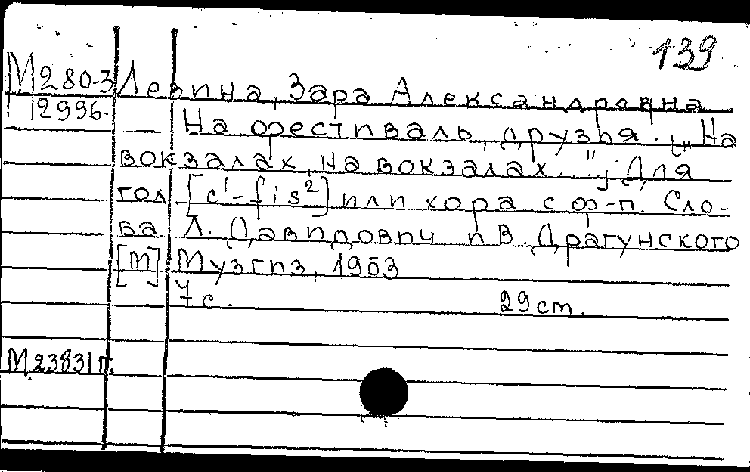 139
М280-3 Левина, Зара Александровна
12996.
На фестиваль, друзья. „На
вокзалах, на вокзалах..."; Для
гол [c¹-fis²] или хора с ф-п. Сло-
ва Л. Давидович и В. Драгунского
[М] Музгиз, 1953
7с. 29 cm.
М23831п.